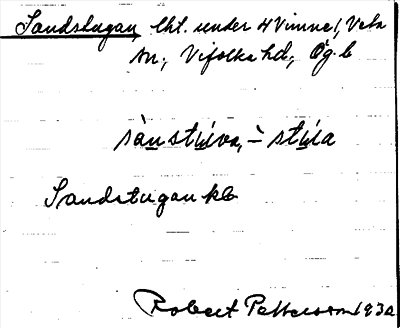 Sandstugan, lht. under 4 Vimne 1, Veta
sn., Vifolka hd., Ög. l.
sànstu̲va, -̀ stu̲a
Sandstugan kb
Robert Pettersson 1930